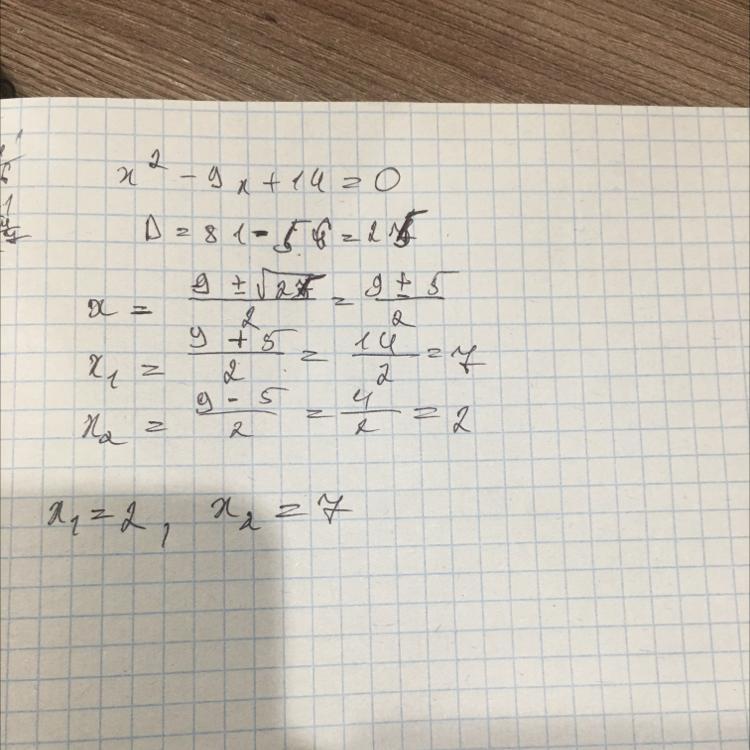 x² - 9x + 14 = 0
D = 81 - 56 = 25
x = (9 ± √25)/2 = (9 ± 5)/2
x₁ = (9 + 5)/2 = 14/2 = 7
x₂ = (9 - 5)/2 = 4/2 = 2
x₁ = 2, x₂ = 7